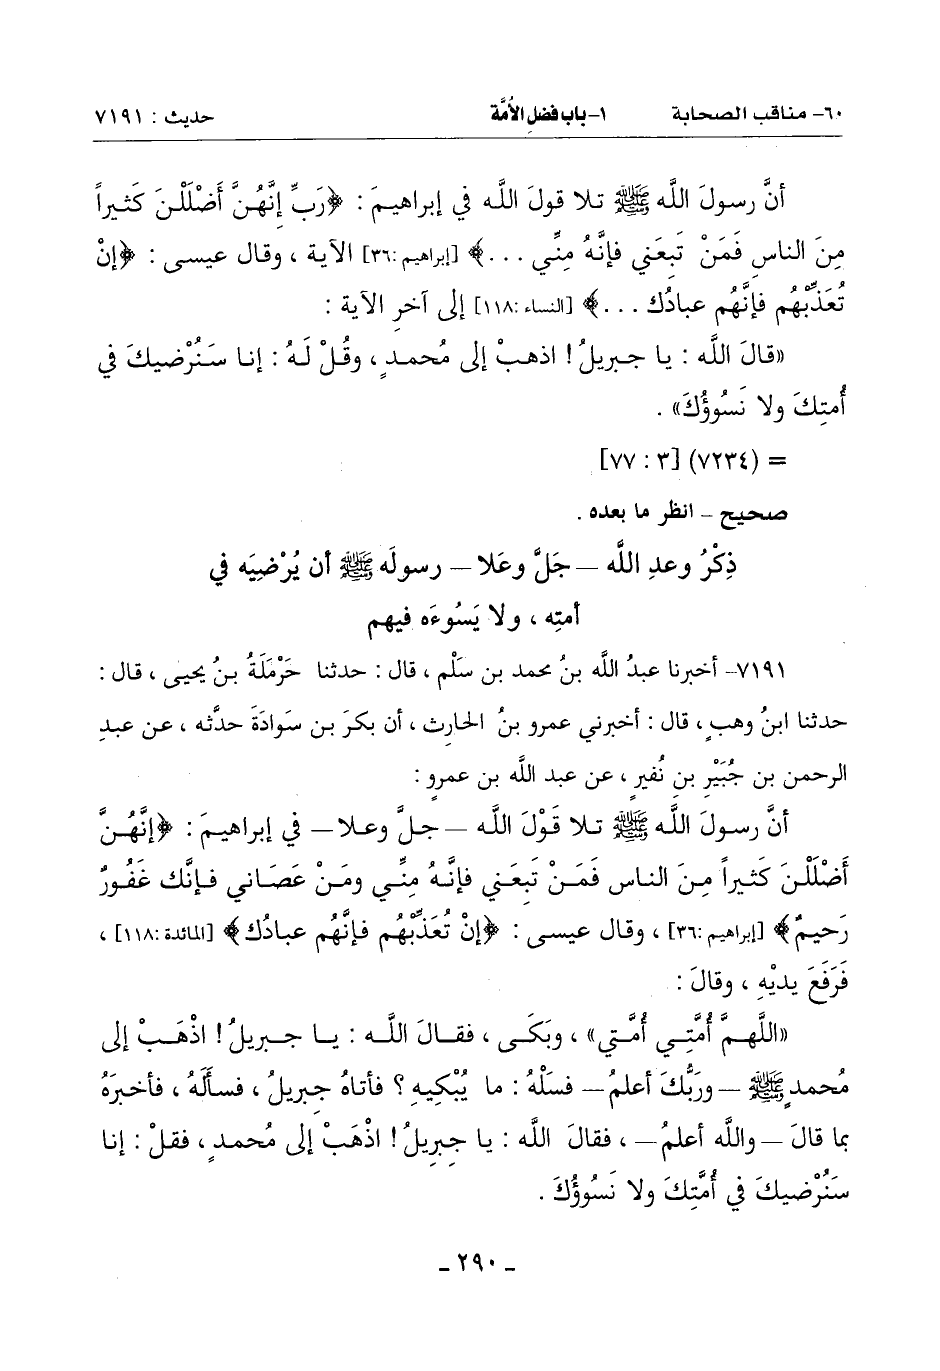 ٦٠- مناقب الصحابة ١- باب فضل الأُمَّة حديث : ٧١٩١
أنَّ رسولَ اللَّه ﷺ تلا قولَ اللَّه في إبراهيمَ : ﴿رَبِّ إِنَّهُنَّ أَضْلَلْنَ كَثيراً
مِنَ الناسِ فَمَنْ تَبِعَني فإنَّهُ مِنِّي . . .﴾ [إبراهيم :٣٦] الآية ، وقال عيسى : ﴿إنْ
تُعَذِّبْهُم فإنَّهُم عبادُك . . .﴾ [النساء :١١٨] إلى آخرِ الآية :
«قالَ اللَّه : يا جبريلُ! اذهبْ إلى مُحمدٍ ، وقُلْ لَهُ : إنا سَنُرْضيكَ في
أُمتِكَ ولا نَسُوؤُكَ» .
= (٧٢٣٤) [٣ : ٧٧]
صحيح - انظر ما بعده .
ذِكْرُ وعدِ اللَّه – جَلَّ وعَلا – رسولَه ﷺ أن يُرْضِيَه في
أمتِه ، ولا يَسُوءَه فيهم
٧١٩١- أخبرنا عبدُ اللَّه بنُ محمد بن سَلْم ، قال : حدثنا حَرْمَلَةُ بنُ يحيى ، قال :
حدثنا ابنُ وهبٍ ، قال : أخبرني عمرو بنُ الحارِث ، أن بكرَ بن سَوادَةَ حدَّثه ، عن عبدِ
الرحمن بن جُبَيْرِ بنِ نُفيرٍ ، عن عبد اللَّه بن عمرٍو :
أنَّ رسولَ اللَّه ﷺ تلا قَوْلَ اللَّه – جلَّ وعلا – في إبراهيمَ : ﴿إنَّهُنَّ
أَضْلَلْنَ كَثيراً مِنَ الناس فَمَنْ تَبِعَني فإنَّهُ مِنِّي ومَنْ عَصَاني فإنَّك غَفُورٌ
رَحيمٌ﴾ [إبراهيم :٣٦] ، وقال عيسى : ﴿إنْ تُعَذِّبْهُم فإنَّهُم عبادُك﴾ [المائدة :١١٨] ،
فَرَفَعَ يديْهِ ، وقالَ :
«اللَّهمَّ أُمَّتِي أُمَّتي» ، وبَكَى ، فقالَ اللَّه : يا جبريلُ! اذْهَبْ إلى
مُحمدٍ ﷺ – ورَبُّكَ أعلمُ – فسَلْهُ : ما يُبْكِيهِ ؟ فأتاهُ جبريلُ ، فسألَهُ ، فأخبرَهُ
بما قالَ – واللَّه أعلمُ – ، فقالَ اللَّه : يا جبريلُ! اذْهَبْ إلى مُحمدٍ ، فقلْ : إنا
سَنُرْضيكَ في أُمَّتِكَ ولا نَسُوؤُكَ .
- ٢٩٠ -